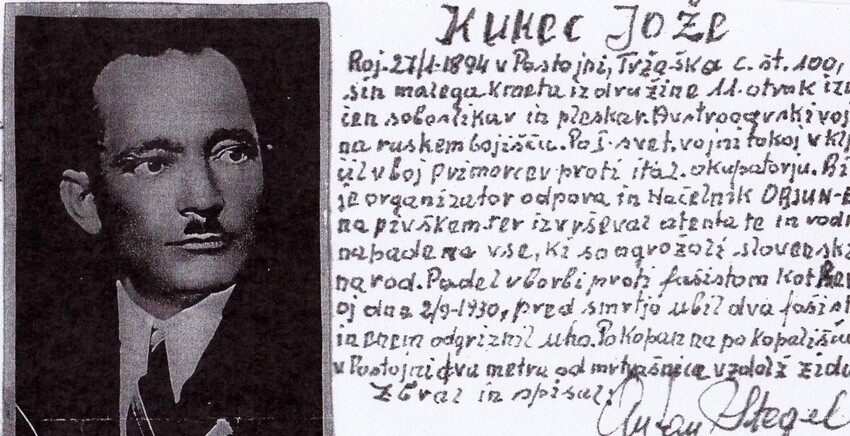 KUKEC JOŽE
Roj. 27/1-1894 v Postojni, Tržaška c. št. 100,
sin malega kmeta iz družine 11. otrok izu
čen soboslikar in pleskar. Avstroogrski voj
na ruskem bojišču. Po I. svet. vojni takoj v klj
učil v boj Primorcev proti ital. okupatorju. Bi
je organizator odpora in načelnik ORJUN-E
na pivškem ter izvrševal atentate in vodil
napade na vse, ki so ogrožali slovensk
narod. Padel v borbi proti fašistom kot
oj dne 2/9-1930, pred smrtjo ubil dva fašist
in enem odgriznil uho. Pokopan na pokopališču
v Postojni dva metra od mrtvašnice vzdolž zidu
Zbral in spisal:
Stegel